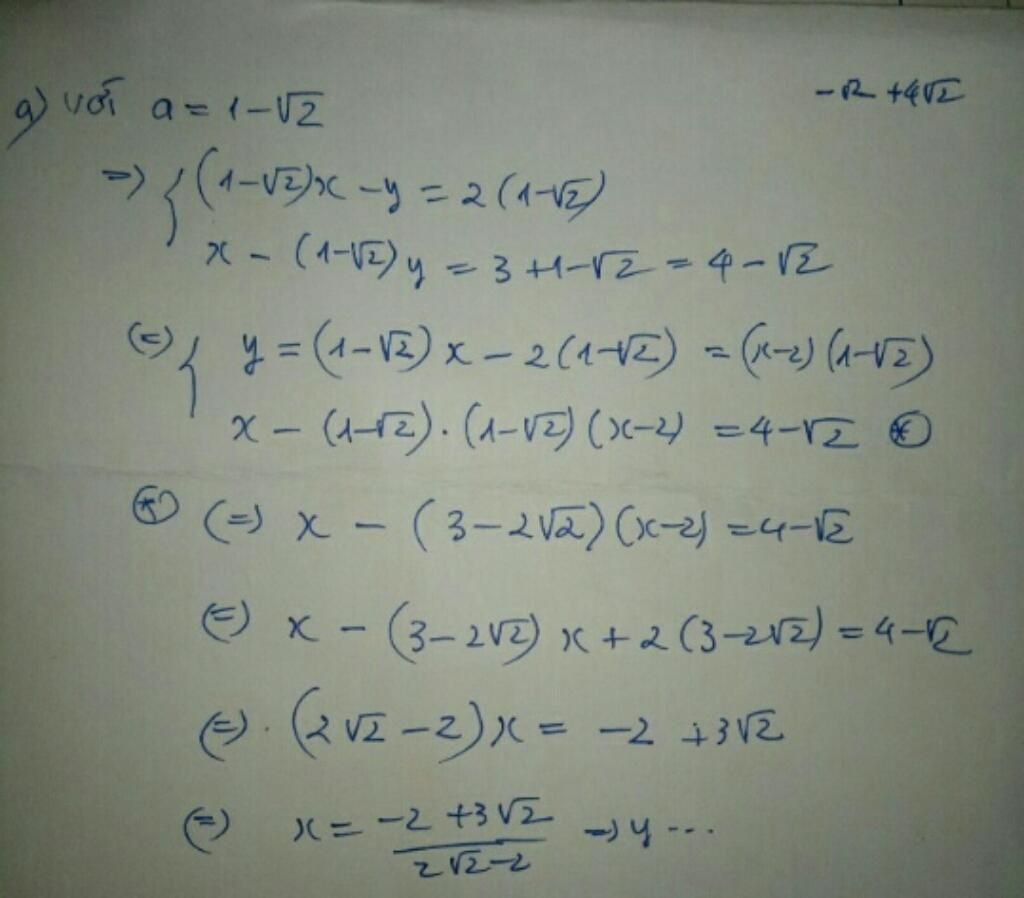 a) với a = 1-√2
-√2 +4√2
=> { (1-√2)x - y = 2(1-√2)
x - (1-√2)y = 3+1-√2 = 4-√2
(=) { y = (1-√2)x - 2(1-√2) = (x-2)(1-√2)
x - (1-√2).(1-√2)(x-2) = 4-√2 (*)
(*) (=) x - (3-2√2)(x-2) = 4-√2
(=) x - (3-2√2)x + 2(3-2√2) = 4-√2
(=) . (2√2-2)x = -2 +3√2
(=) x = (-2 +3√2)/(2√2-2) => y ...